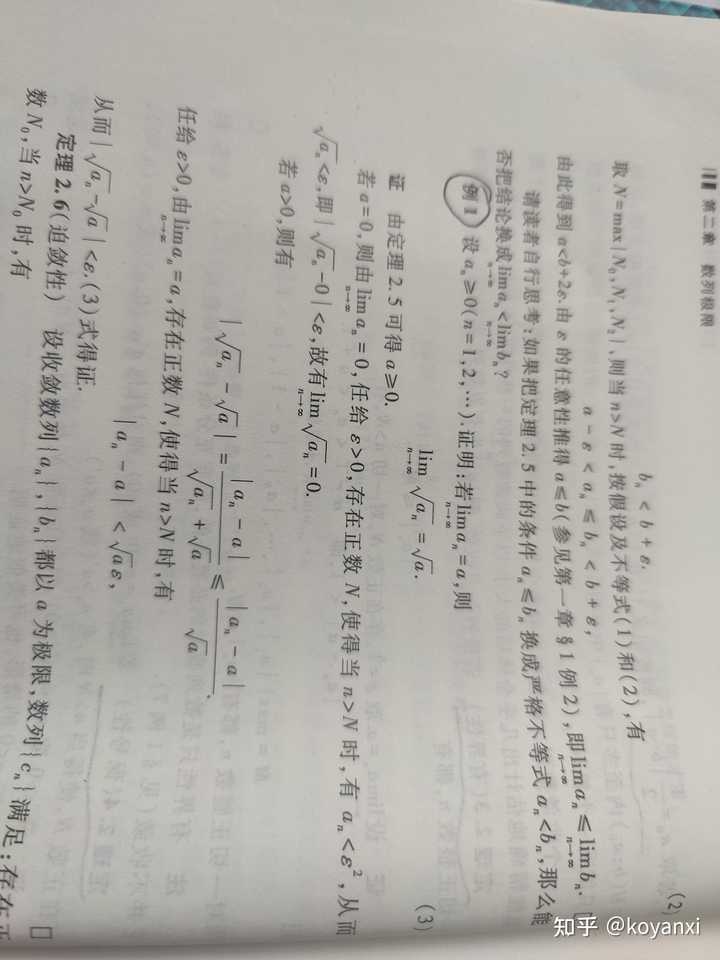 第二章 数列极限
bₙ < b + ε. (2)
取 N = max{N₀, N₁, N₂}, 则当 n>N 时, 按假设及不等式(1)和(2), 有
a − ε < aₙ ≤ bₙ < b + ε,
由此得到 a<b+2ε. 由 ε 的任意性推得 a≤b(参见第一章§1例2), 即 lim_{n→∞} aₙ ≤ lim_{n→∞} bₙ.
请读者自行思考: 如果把定理 2.5 中的条件 aₙ≤bₙ 换成严格不等式 aₙ<bₙ, 那么能
否把结论换成 lim_{n→∞} aₙ < lim_{n→∞} bₙ?
例 1 设 aₙ≥0(n=1,2,⋯). 证明: 若 lim_{n→∞} aₙ = a, 则
lim_{n→∞} √aₙ = √a. (3)
证 由定理 2.5 可得 a≥0.
若 a=0, 则由 lim_{n→∞} aₙ = 0, 任给 ε>0, 存在正数 N, 使得当 n>N 时, 有 aₙ<ε², 从而
√aₙ<ε, 即 |√aₙ−0|<ε, 故有 lim_{n→∞} √aₙ = 0.
若 a>0, 则有
|√aₙ − √a| = |aₙ − a| / (√aₙ + √a) ≤ |aₙ − a| / √a.
任给 ε>0, 由 lim_{n→∞} aₙ = a, 存在正数 N, 使得当 n>N 时, 有
|aₙ − a| < √a ε,
从而 |√aₙ−√a|<ε. (3)式得证. □
定理 2.6(迫敛性) 设收敛数列{aₙ},{bₙ}都以 a 为极限, 数列{cₙ}满足: 存在正
数 N₀, 当 n>N₀ 时, 有
知乎 @koyanxi